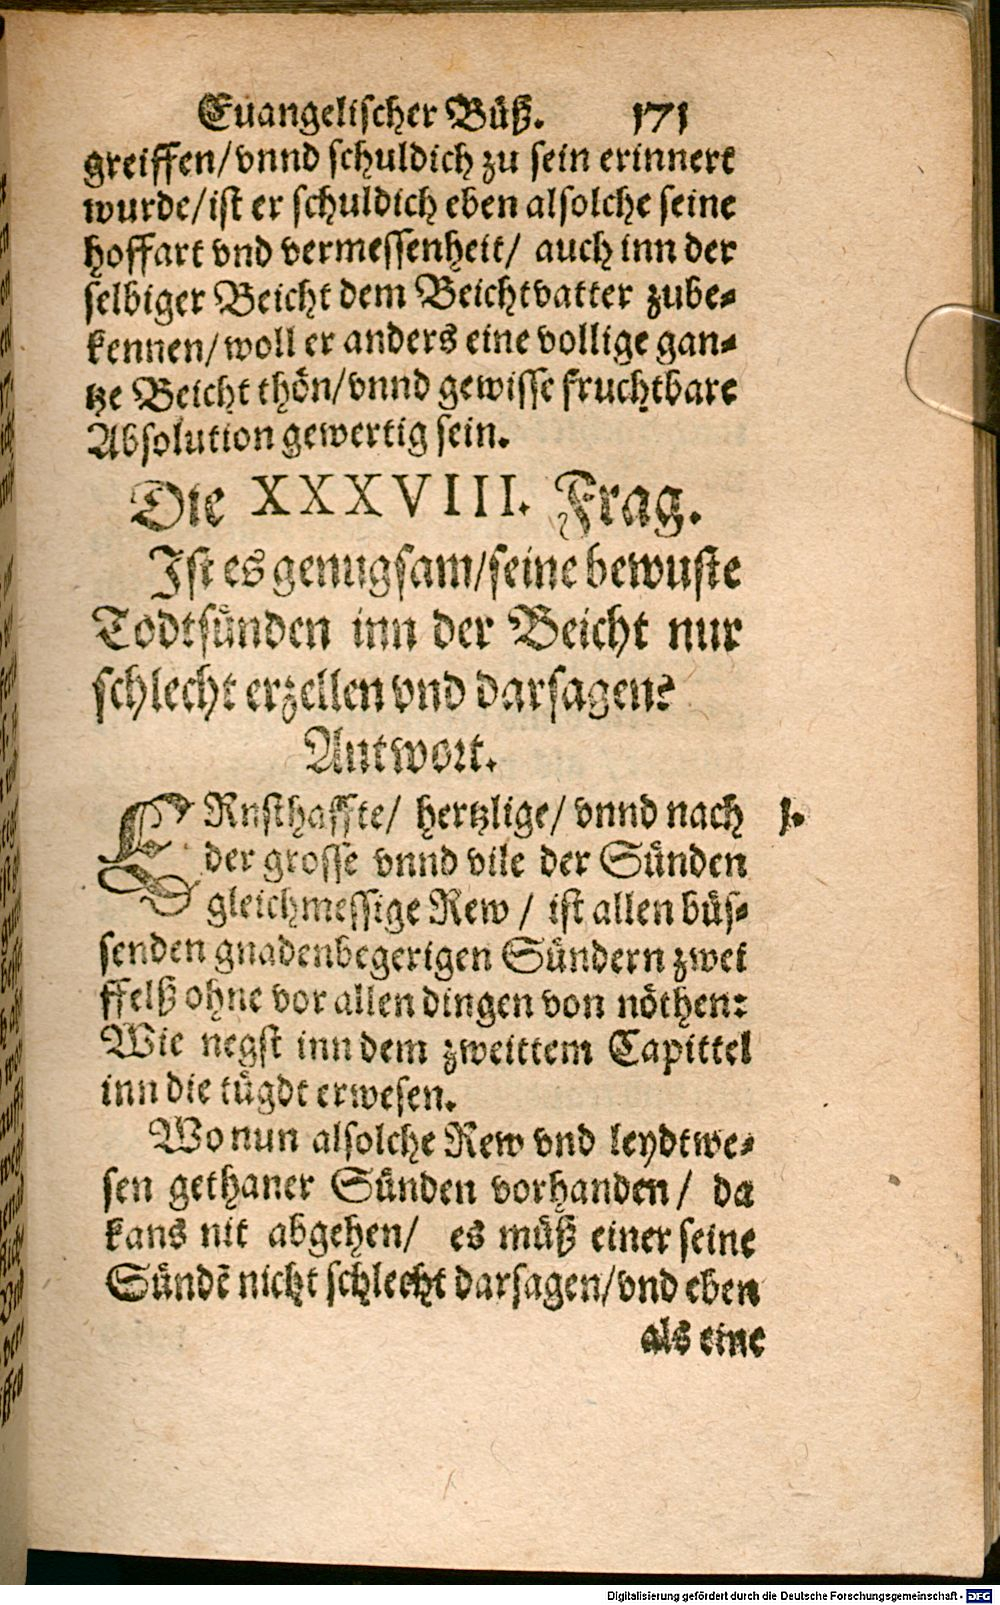 Euangelischer Büß. 171
greiffen/vnnd schuldich zu sein erinnert
wurde/ist er schuldich eben alsolche seine
hoffart vnd vermessenheit/ auch inn der
selbiger Beicht dem Beichtvatter zube-
kennen/woll er anders eine vollige gan-
tze Beicht thön/vnnd gewisse fruchtbare
Absolution gewertig sein.
Die XXXVIII. Frag.
Ist es genugsam/seine bewuste
Todtsünden inn der Beicht nur
schlecht erzellen vnd darsagen?
Antwort.
ERnsthaffte/ hertzlige/ vnnd nach 1.
der grosse vnnd vile der Sünden
gleichmessige Rew / ist allen büs-
senden gnadenbegerigen Sündern zwei
ffelß ohne vor allen dingen von nöthen:
Wie negst inn dem zweittem Capittel
inn die tügdt erwesen.
Wo nun alsolche Rew vnd leydtwe-
sen gethaner Sünden vorhanden/ da
kans nit abgehen/ es müß einer seine
Sündē nicht schlecht darsagen/vnd eben
als eine
Digitalisierung gefördert durch die Deutsche Forschungsgemeinschaft - DFG